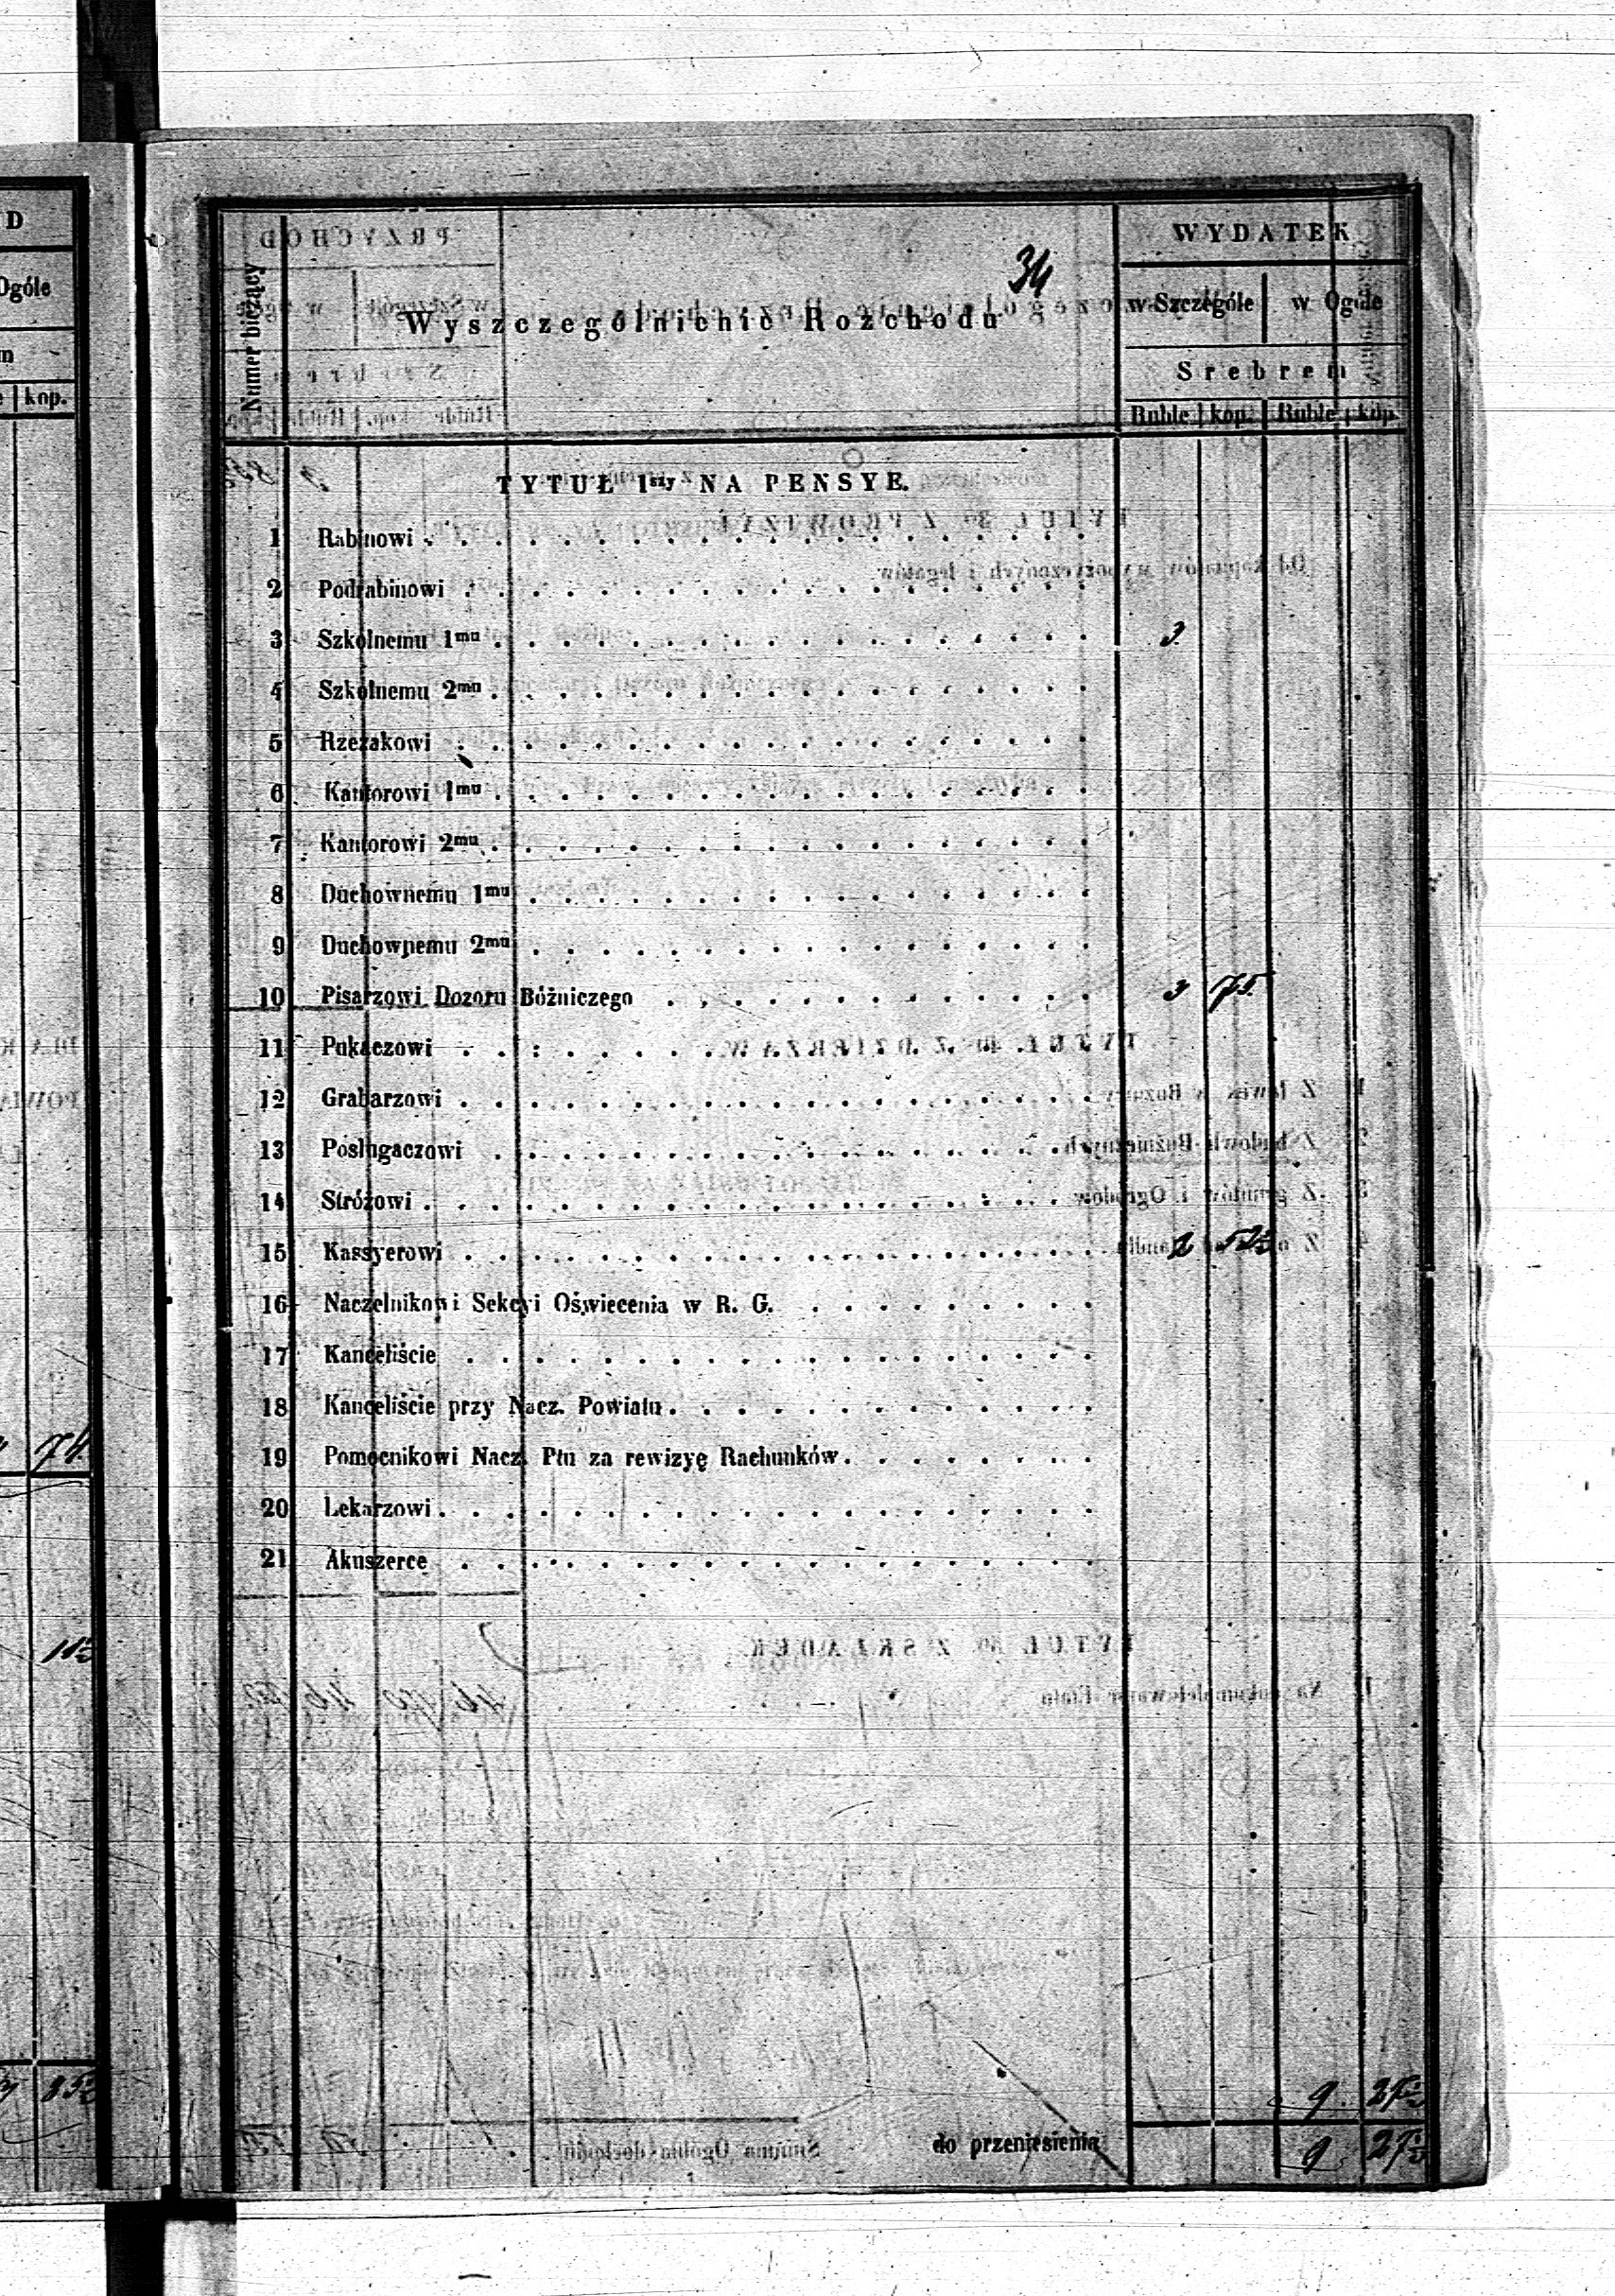 D
Ogóle
kop.
74.
11½
85½
34
Numer bieżący
Wyszczególnienie Rozchodu
WYDATEK
w Szczególe w Ogóle
Srebrem
Ruble kop. Ruble kop.
TYTUŁ 1szy NA PENSYE.
1 Rabinowi
2 Podrabinowi
3 Szkolnemu 1mu 3
4 Szkolnemu 2mu
5 Rzezakowi
6 Kantorowi 1mu
7 Kantorowi 2mu
8 Duchownemu 1mu
9 Duchownemu 2mu
10 Pisarzowi Dozoru Bóżniczego 3 75.
11 Pukaczowi
12 Grabarzowi
13 Posługaczowi
14 Stróżowi
15 Kassyerowi 2 52½
16 Naczelnikowi Sekcyi Oświecenia w R. G.
17 Kanceliście
18 Kanceliście przy Nacz. Powiatu
19 Pomocnikowi Nacz. Ptu za rewizyę Rachunków
20 Lekarzowi
21 Akuszerce
9 27½
do przeniesienia 9 27½